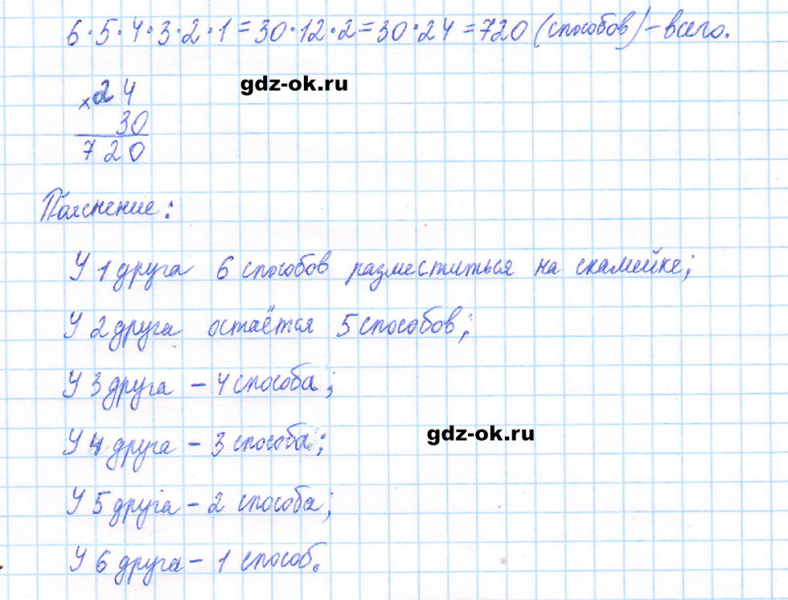 6·5·4·3·2·1=30·12·2=30·24=720 (способов)-всего.
gdz-ok.ru
×24
30
720
Пояснение:
У 1 друга 6 способов разместиться на скамейке;
У 2 друга остаётся 5 способов;
У 3 друга - 4 способа;
У 4 друга - 3 способа;
gdz-ok.ru
У 5 друга - 2 способа;
У 6 друга - 1 способ.